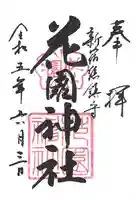 奉拝
新宿総鎮守
花園神社
令和五年六月三日